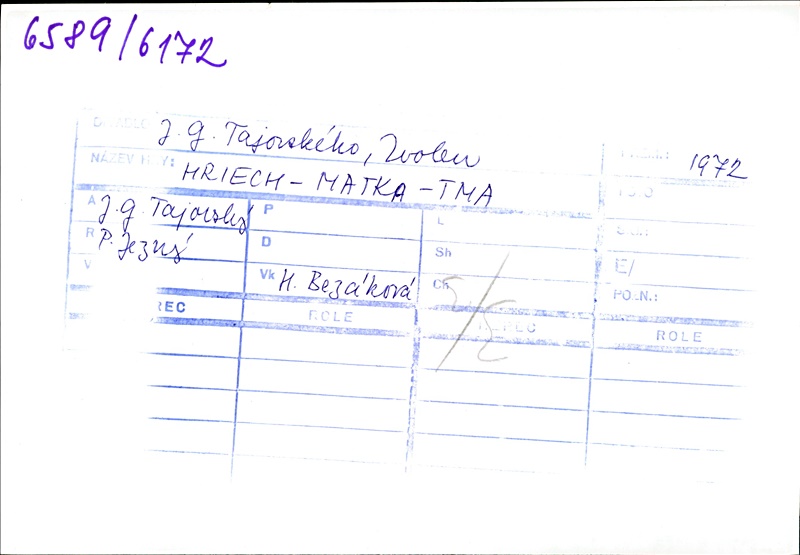 6589/6172
DIVADLO J. G. Tajovského, Zvolen
1972
NÁZEV HRY: HRIECH – MATKA – TMA
A J. G Tajovský P L
R P. Jezný D Sh E/
V Vk H. Bezáková Ch PO.N.:
2/2
REC ROLE HEREC ROLE